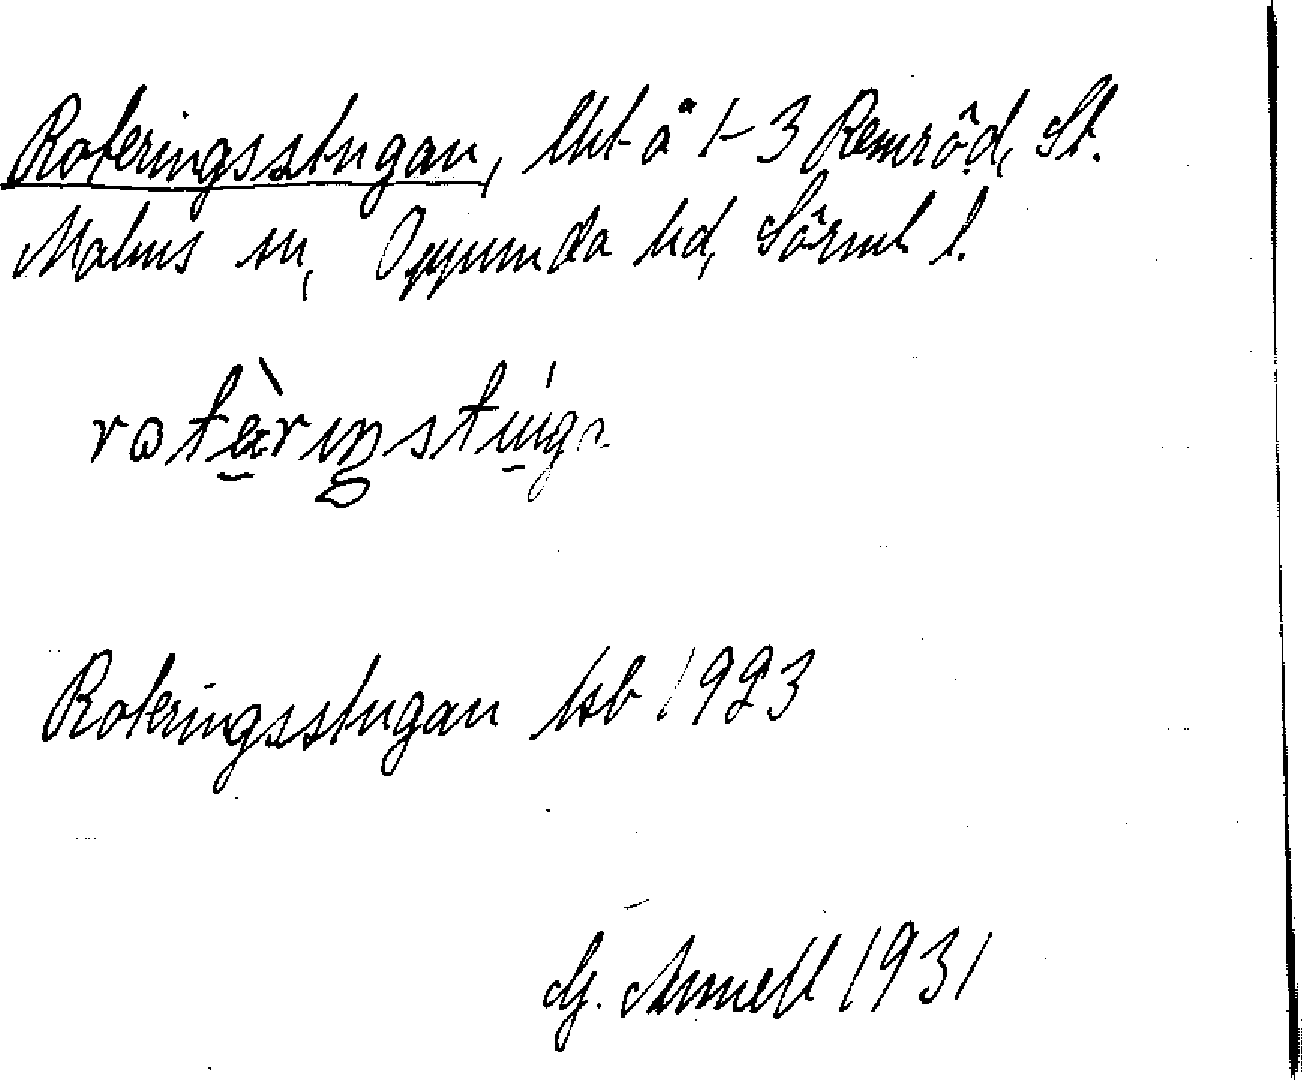 Roteringsstugan, lht å 1-3 Remröd, St.
Malms sn, Oppunda hd, Sörml l.
Roteringsstugan hsb 1923
G. Annell 1931